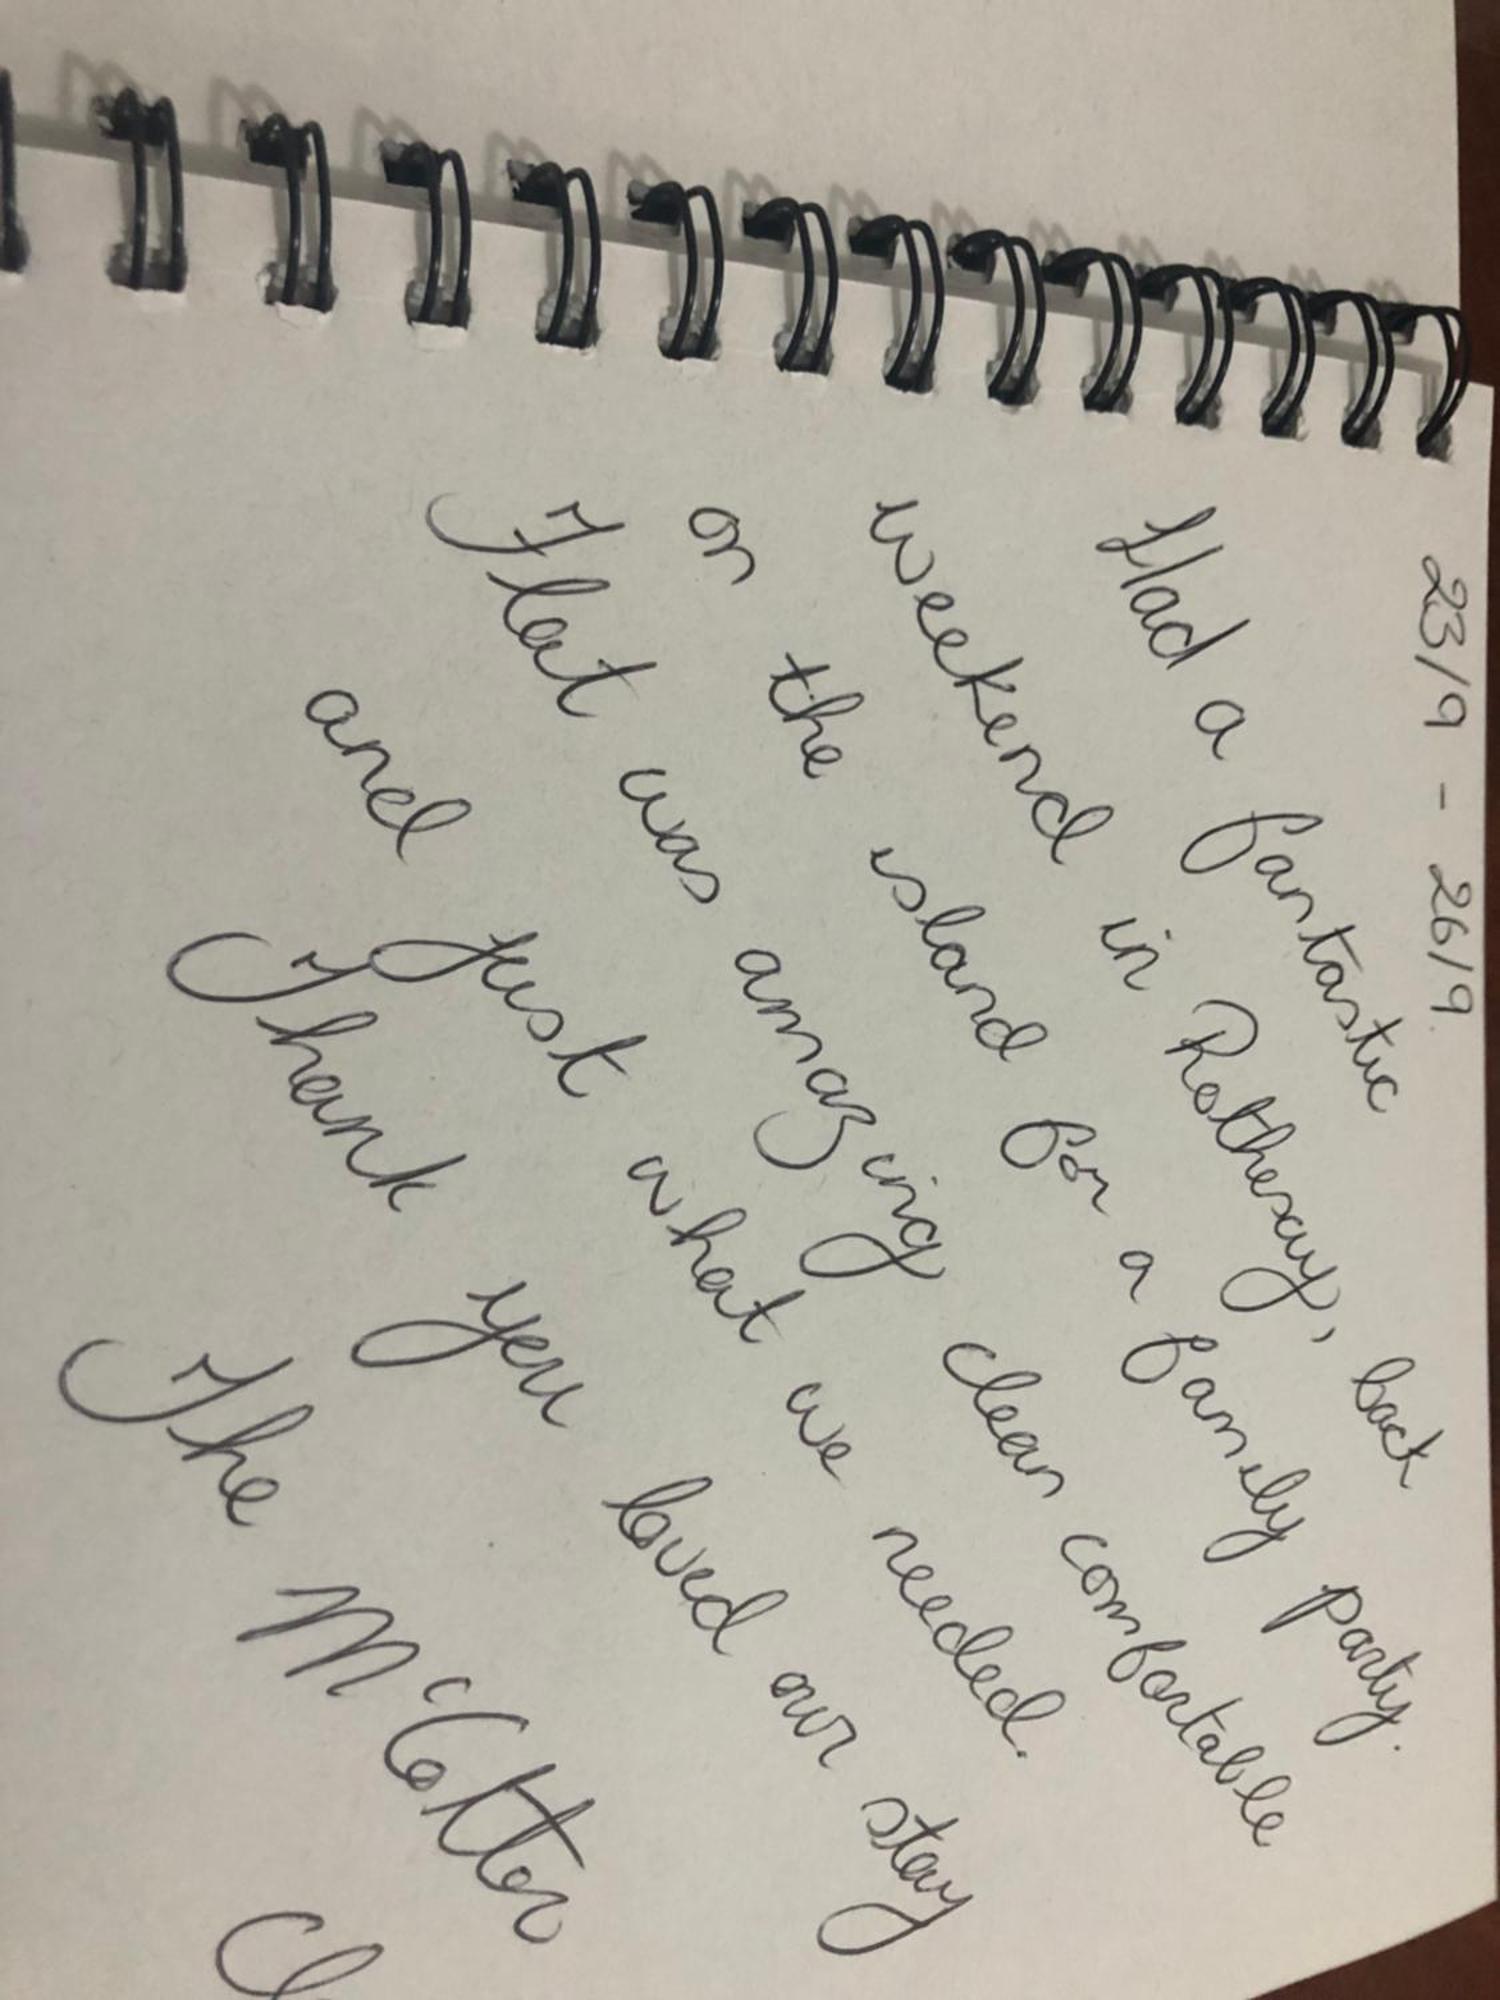 23/9 - 26/9
Had a fantastic
weekend in Rothesay, back
on the island for a family party.
Flat was amazing clean comfortable
and just what we needed.
Thank you loved our stay
The McCotter